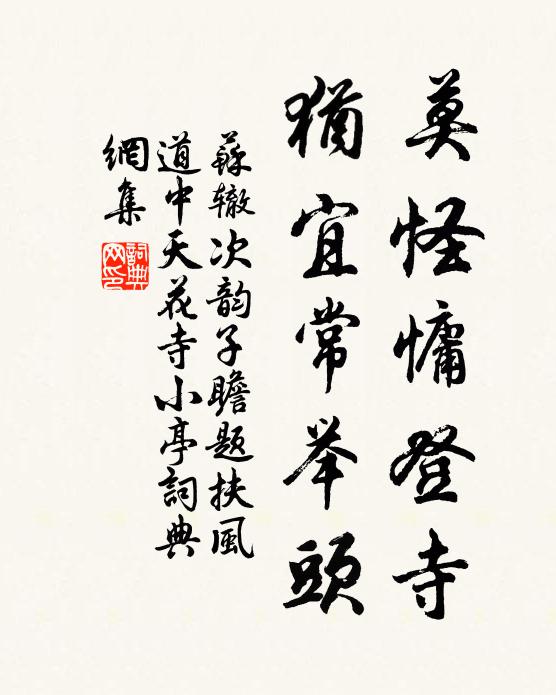 莫怪慵登寺
猶宜常举頭
蘇辙次韵子瞻题扶風
道中天花寺小亭詞典
網集
詞典
网印